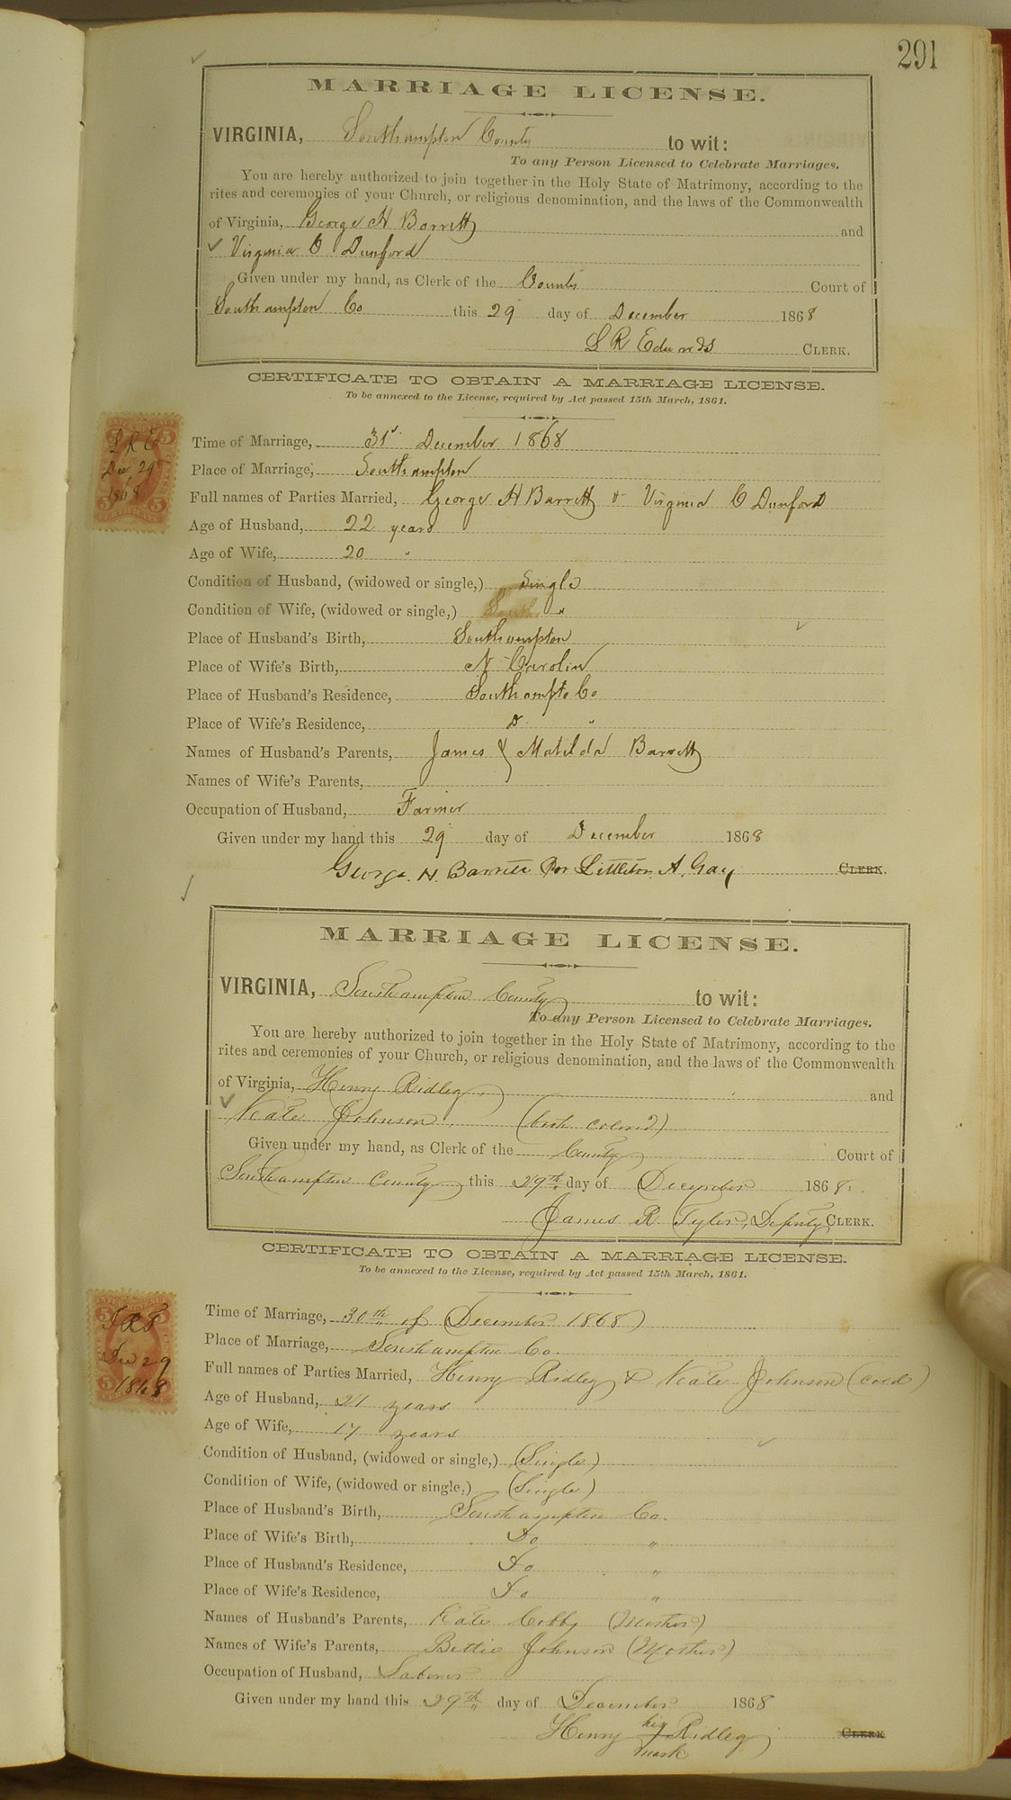 291
MARRIAGE LICENSE.
VIRGINIA, Southampton County to wit:
To any Person Licensed to Celebrate Marriages.
You are hereby authorized to join together in the Holy State of Matrimony, according to the
rites and ceremonies of your Church, or religious denomination, and the laws of the Commonwealth
of Virginia, George H Barrett and
Virginia C Dunford
Given under my hand, as Clerk of the County Court of
Southampton Co this 29 day of December 1868
L R Edwards CLERK.
CERTIFICATE TO OBTAIN A MARRIAGE LICENSE.
To be annexed to the License, required by Act passed 15th March, 1861.
L R E
Dec 29
1868
Time of Marriage, 31st December 1868
Place of Marriage, Southampton
Full names of Parties Married, George H Barrett & Virginia C Dunford
Age of Husband, 22 years
Age of Wife, 20 "
Condition of Husband, (widowed or single,) Single
Condition of Wife, (widowed or single,) "
Place of Husband's Birth, Southampton
Place of Wife's Birth, N Carolin
Place of Husband's Residence, Southampto Co
Place of Wife's Residence, "
Names of Husband's Parents, James & Matilda Barrett
Names of Wife's Parents,
Occupation of Husband, Farmer
Given under my hand this 29 day of December 1868
George H. Barrett Per Littleton A. Gay CLERK.
MARRIAGE LICENSE.
VIRGINIA, Southampton County to wit:
To any Person Licensed to Celebrate Marriages.
You are hereby authorized to join together in the Holy State of Matrimony, according to the
rites and ceremonies of your Church, or religious denomination, and the laws of the Commonwealth
of Virginia, Henry Ridley and
Kate Johnson (both colored)
Given under my hand, as Clerk of the County Court of
Southampton County this 29th day of December 1868.
James R. Tyler, Deputy CLERK.
CERTIFICATE TO OBTAIN A MARRIAGE LICENSE.
To be annexed to the License, required by Act passed 15th March, 1861.
J R T
Dec 29
1868
Time of Marriage, 30th of December 1868
Place of Marriage, Southampton Co.
Full names of Parties Married, Henry Ridley & Kate Johnson (cold)
Age of Husband, 21 years
Age of Wife, 17 years
Condition of Husband, (widowed or single,) (Single)
Condition of Wife, (widowed or single,) (Single)
Place of Husband's Birth, Southampton Co.
Place of Wife's Birth, Do "
Place of Husband's Residence, Do "
Place of Wife's Residence, Do "
Names of Husband's Parents, Kate Cobby (Mother)
Names of Wife's Parents, Bettie Johnson (Mother)
Occupation of Husband, Laborer
Given under my hand this 29th day of December 1868
Henry his Ridley CLERK
mark